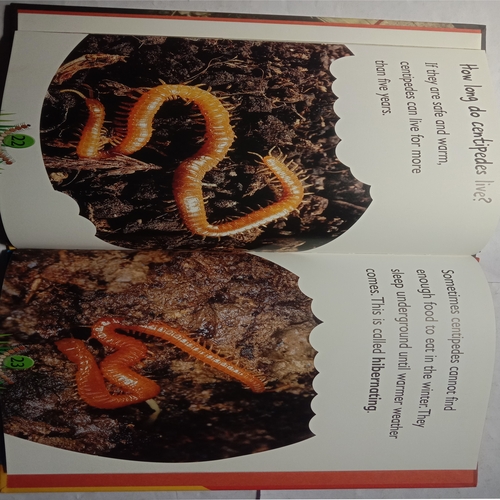 How long do centipedes live?
If they are safe and warm,
centipedes can live for more
than five years.
22
Sometimes centipedes cannot find
enough food to eat in the winter. They
sleep underground until warmer weather
comes. This is called hibernating.
23